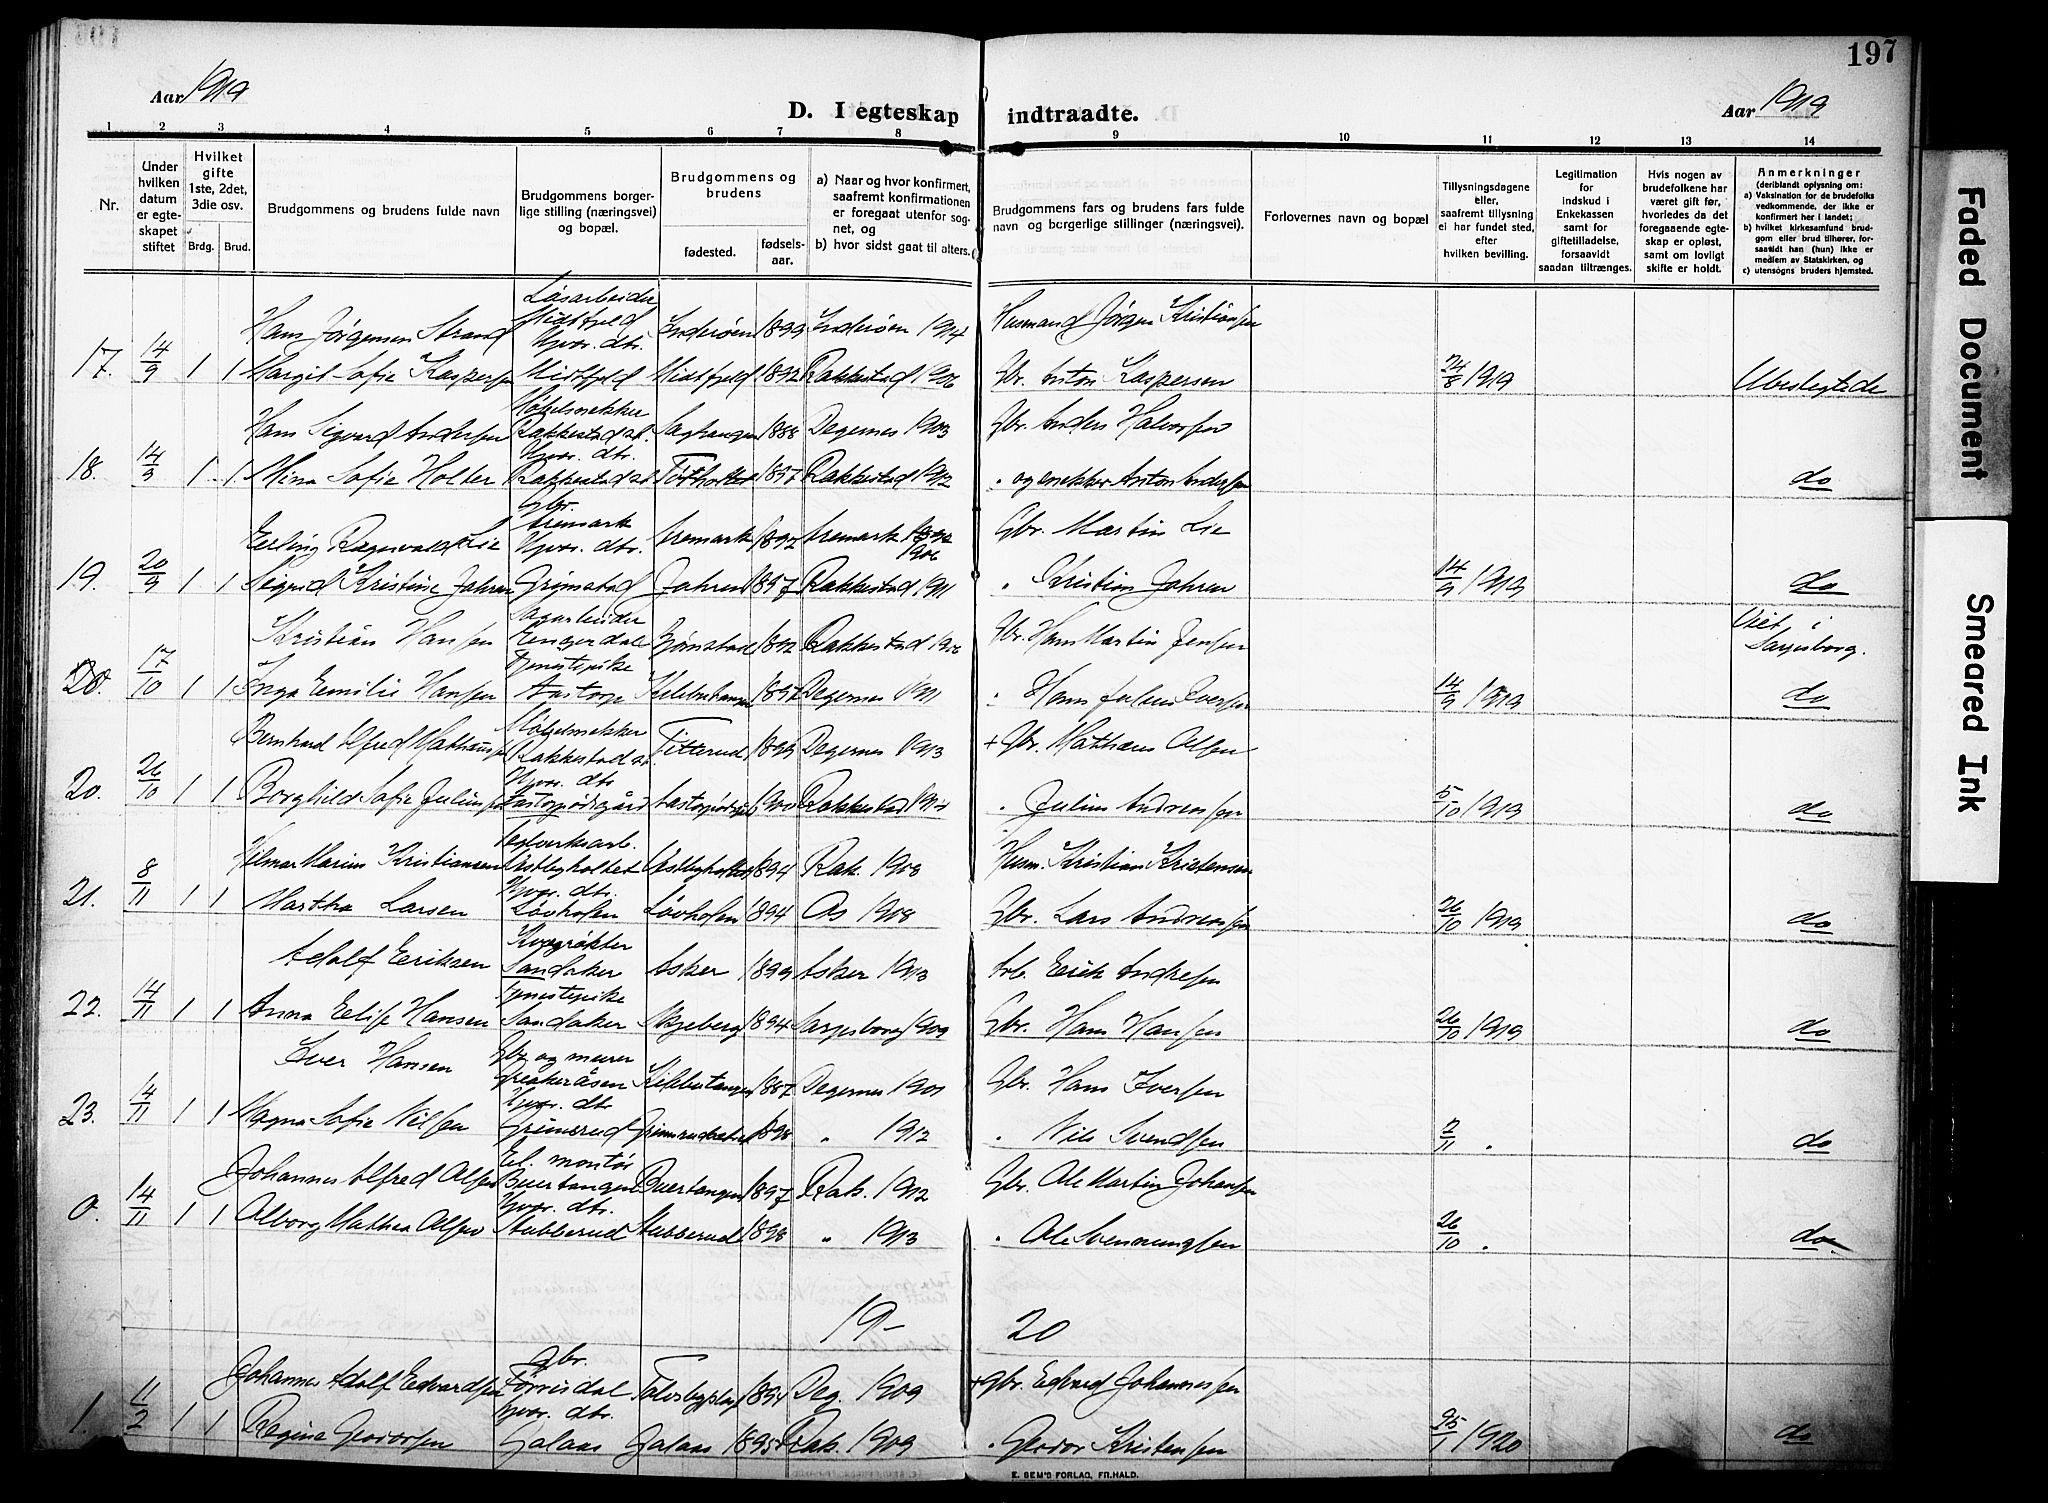 197
Aar 1919
D. I egteskap indtraadte.
Aar 1919
1 2 3 4 5 6 7 8 9 10 11 12 13 14
Nr.
Under hvilken datum er egteskapet stiftet
Hvilket gifte 1ste, 2det, 3die osv.
Brdg. Brud.
Brudgommens og brudens fulde navn
Brudgommens borgerlige stilling (næringsvei) og bopæl.
Brudgommens og brudens
fødested.
fødselsaar.
a) Naar og hvor konfirmert, saafremt konfirmationen er foregaat utenfor sognet, og
b) hvor sidst gaat til alters.
Brudgommens fars og brudens fars fulde navn og borgerlige stillinger (næringsvei).
Forlovernes navn og bopæl
Tillysningsdagene eller, saafremt tillysning ei har fundet sted, efter hvilken bevilling.
Legitimation for indskud i Enkekassen samt for giftetilladelse, forsaavidt saadan tiltrænges.
Hvis nogen av brudefolkene har været gift før, hvorledes da det foregaaende egteskap er opløst, samt om lovligt skifte er holdt.
Anmerkninger
(deriblandt oplysning om:
a) Vaksination for de brudefolks vedkommende, der ikke er konfirmert her i landet;
b) hvilket kirkesamfund brudgom eller brud tilhører, forsaavidt han (hun) ikke er medlem av Statskirken, og
c) utensogns bruders hjemsted.
Løsarbeider
Hans Jørgensen Strand Midtfjeld Inderøen 1899 Inderøen 1914 Husmand Jørgen Kristiansen
Gbr. dtr.
17. 14/9 1 1 Margit Sofie Kaspersen Midtfjeld Midtfjeld 1892 Rakkestad 1906 Gbr. Anton Kaspersen 24/8 1919 Ubeslegtede
Møbelsnekker
Hans Sigvard Andersen Rakkestad st. Saghaugen 1888 Degernes 1903 Gbr. Anders Halvorsen
Gbr. dtr.
18. 14/9 1 1 Mina Sofie Holter Rakkestad st. 1897 Rakkestad 1912 " og snekker Anton Andersen do
Gbr.
Erling Ragnvald Lie Aremark Aremark 1892 Aremark 1906 Gbr. Martin Lie
Gbr. dtr.
19. 20/9 1 1 Sigrid Kristine Jahren Grimstad Jahren 1897 Rakkestad 1911 " Kristian Jahren 14/9 1919 do
Kristian Hansen Bjørnstad 1892 Rakkestad 1906 Gbr. Hans Martin Jensen Viet i Sarpsborg.
Tjenestepike
20. 17/10 1 1 Inga Emilie Hansen Aastorp Kikkertangen 1897 Degernes 1911 " Hans Julius Iversen 14/9 1919 do
Møbelsnekker
Bernhard Alfred Mathausen Rakkestad st. Titterud 1893 Degernes 1913 + Gbr. Mathæus Olsen
Gbr. dtr.
20. 26/10 1 1 Borghild Sofie Juliussen 1900 Rakkestad 1914 " Julius Andreassen 5/10 1919 do
Hilmar Marius Kristiansen Østbyholtet 1894 Rak. 1908 Husm. Kristian Kristensen
Gbr. dtr.
21. 8/11 1 1 Martha Larsen Løvhofen Løvhofen 1894 Os 1908 Gbr. Lars Andreassen 26/10 1919 do
Adolf Eriksen Sandaker Asker 1899 Asker 1913 Arb. Erik Andresen
Tjenestepike
22. 14/11 1 1 Anna Elise Hansen Sandaker Skjeberg 1894 Sarpsborg 1909 Gbr. Hans Hansen 26/10 1919 do
Gbr. og murer
Iver Hansen Kikkertangen 1887 Degernes 1901 Gbr. Hans Iversen
Gbr. dtr.
23. 4/11 1 1 Magna Sofie Nilsen Grimsrud 1898 " 1912 " Nils Svendsen 2/11 " do
El. montør
Johannes Alfred Olsen Buertangen Buertangen 1897 Rak. 1912 Gbr. Ole Martin Johansen
Gbr. dtr.
0. 14/11 1 1 Olborg Mathea Olsen Stubberud Stubberud 1898 " 1913 " Ole Svenningsen 26/10 " do
19- 20
gbr.
Johannes Adolf Edvardsen 1894 Deg. 1909 + gbr. Edvard Johannessen
Gbr. dtr.
1. 11/2 1 1 Regina Geodorsen Galaas Galaas 1895 Rak. 1909 " Geodor Kristensen 25/1 1920 do
E. SEM'S FORLAG, FR.HALD.
Faded Document
Smeared Ink